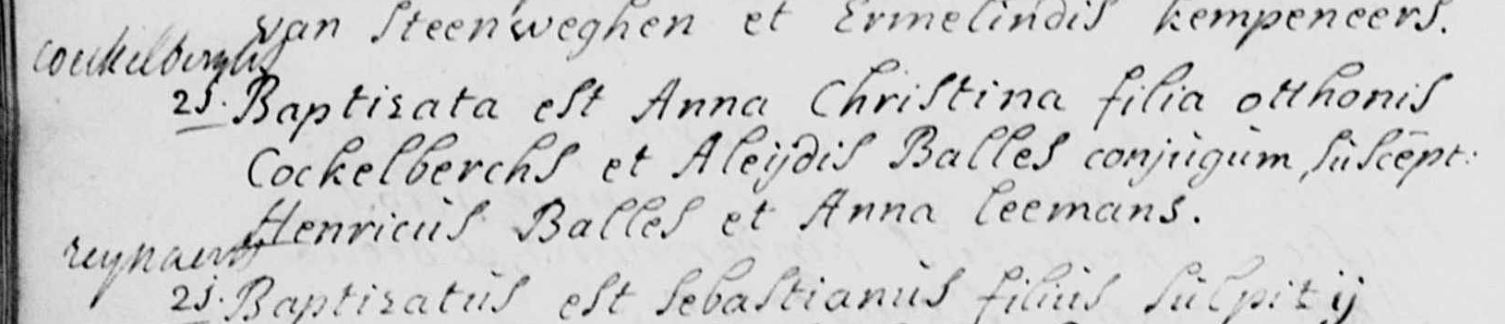 van Steenweghen et Ermelindis kempeneers.
Cockelberghs
25. Baptisata est Anna Christina filia otthonis
Cockelberchs et Aleÿdis Balles conjugum, suscēpt:
Henricus Balles et Anna leemans.
reynaerts
25. Baptisatus est sebastianus filius sulpitij